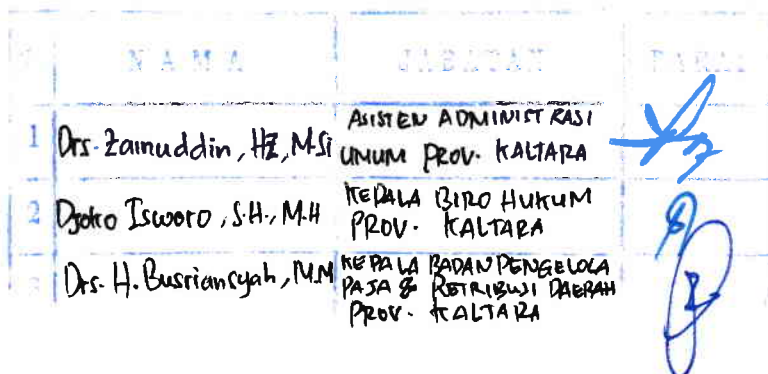 NAMA JABATAN PARAF
1 Drs. Zainuddin, HZ, M.Si ASISTEN ADMINISTRASI UMUM PROV. KALTARA
2 Djoko Isworo, S.H., M.H KEPALA BIRO HUKUM PROV. KALTARA
3 Drs. H. Busriansyah, M.M KEPALA BADAN PENGELOLA PAJA & RETRIBUSI DAERAH PROV. KALTARA